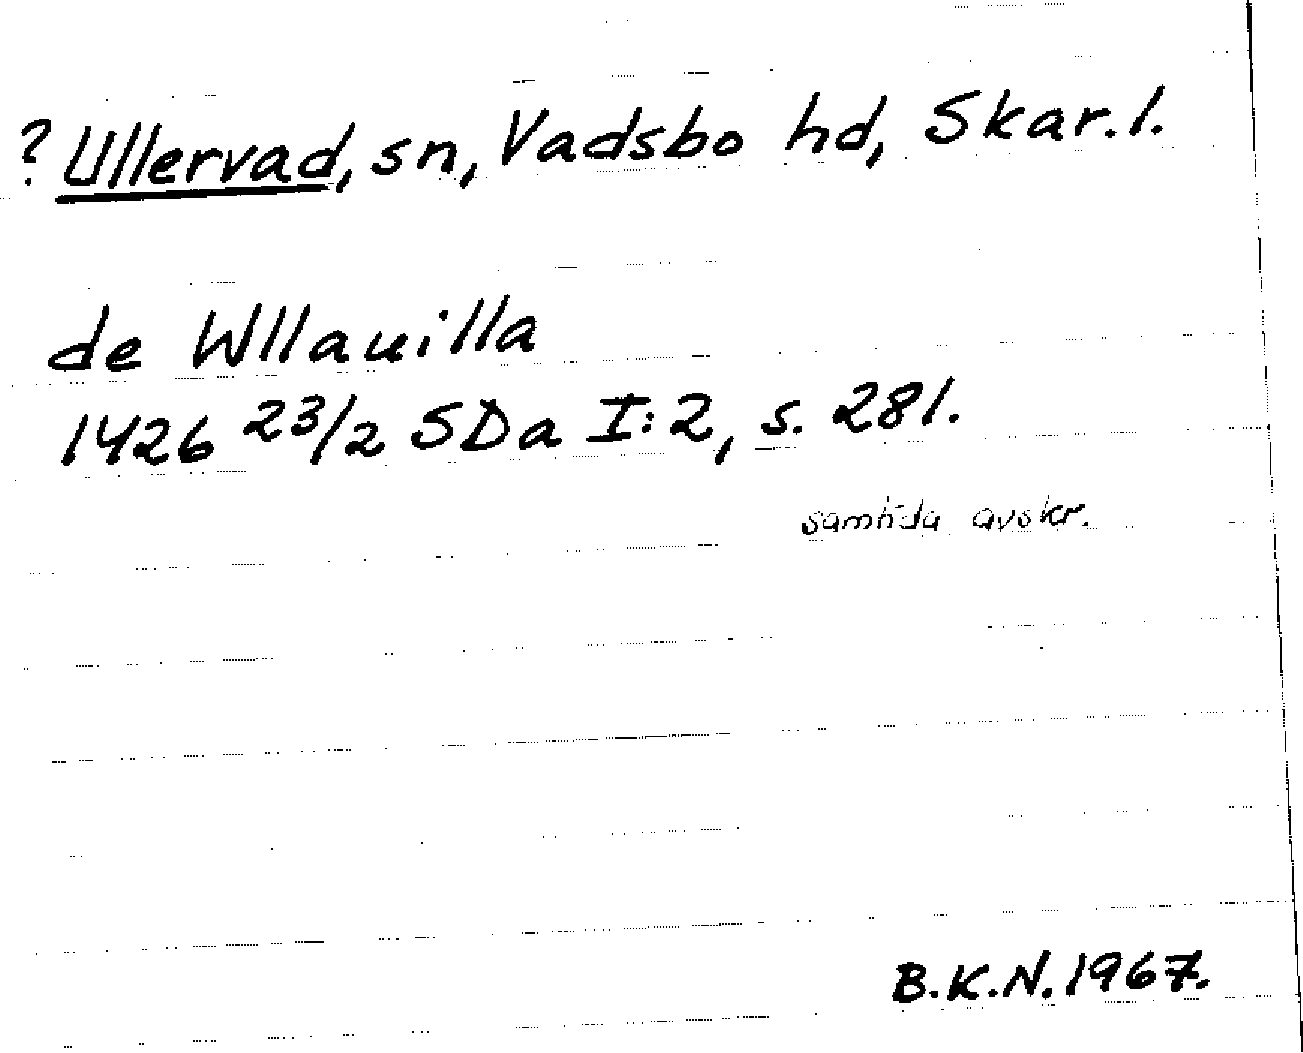 ? Ullervad, sn, Vadsbo hd, Skar. l.
de Wllauilla
1426 23/2 SDa I:2, s. 281.
samtida avskr.
B.K.N. 1967.